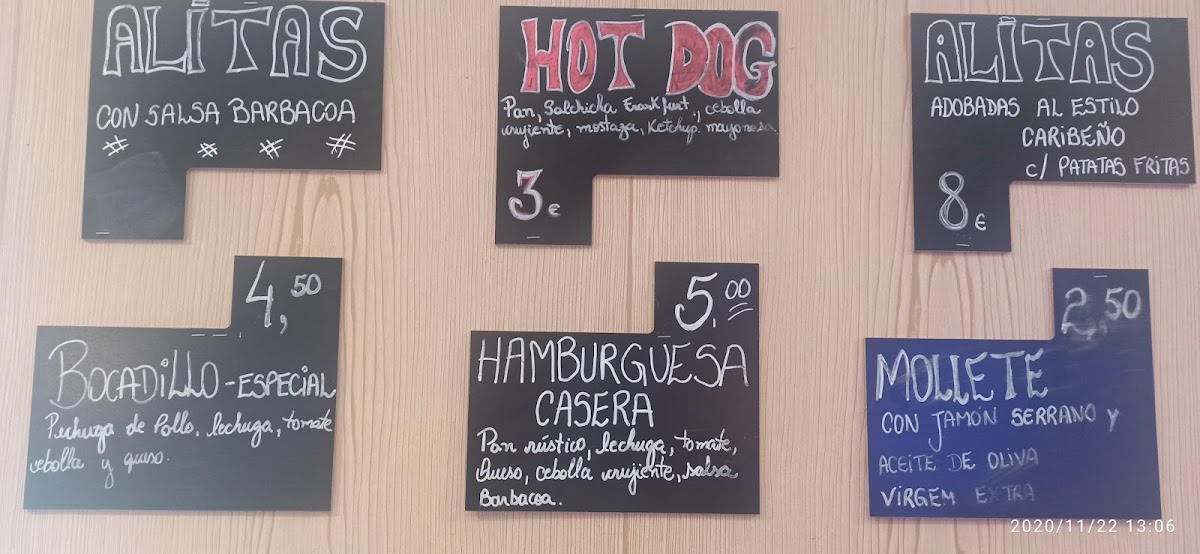 ALITAS
CON SALSA BARBACOA
HOT DOG
Pan, Salchicha Frankfurt, cebolla
crujiente, mostaza, Ketchup, mayonesa
3€
ALITAS
ADOBADAS AL ESTILO
CARIBEÑO
c/ PATATAS FRITAS
8€
4,50
BOCADILLO - ESPECIAL
Pechuga de Pollo, lechuga, tomate
cebolla y queso.
5,00
HAMBURGUESA
CASERA
Pan rústico, lechuga, tomate,
Queso, cebolla crujiente, salsa
Barbacoa.
2,50
MOLLETE
CON JAMÓN SERRANO y
ACEITE DE OLIVA
VIRGEM EXTRA
2020/11/22 13:06